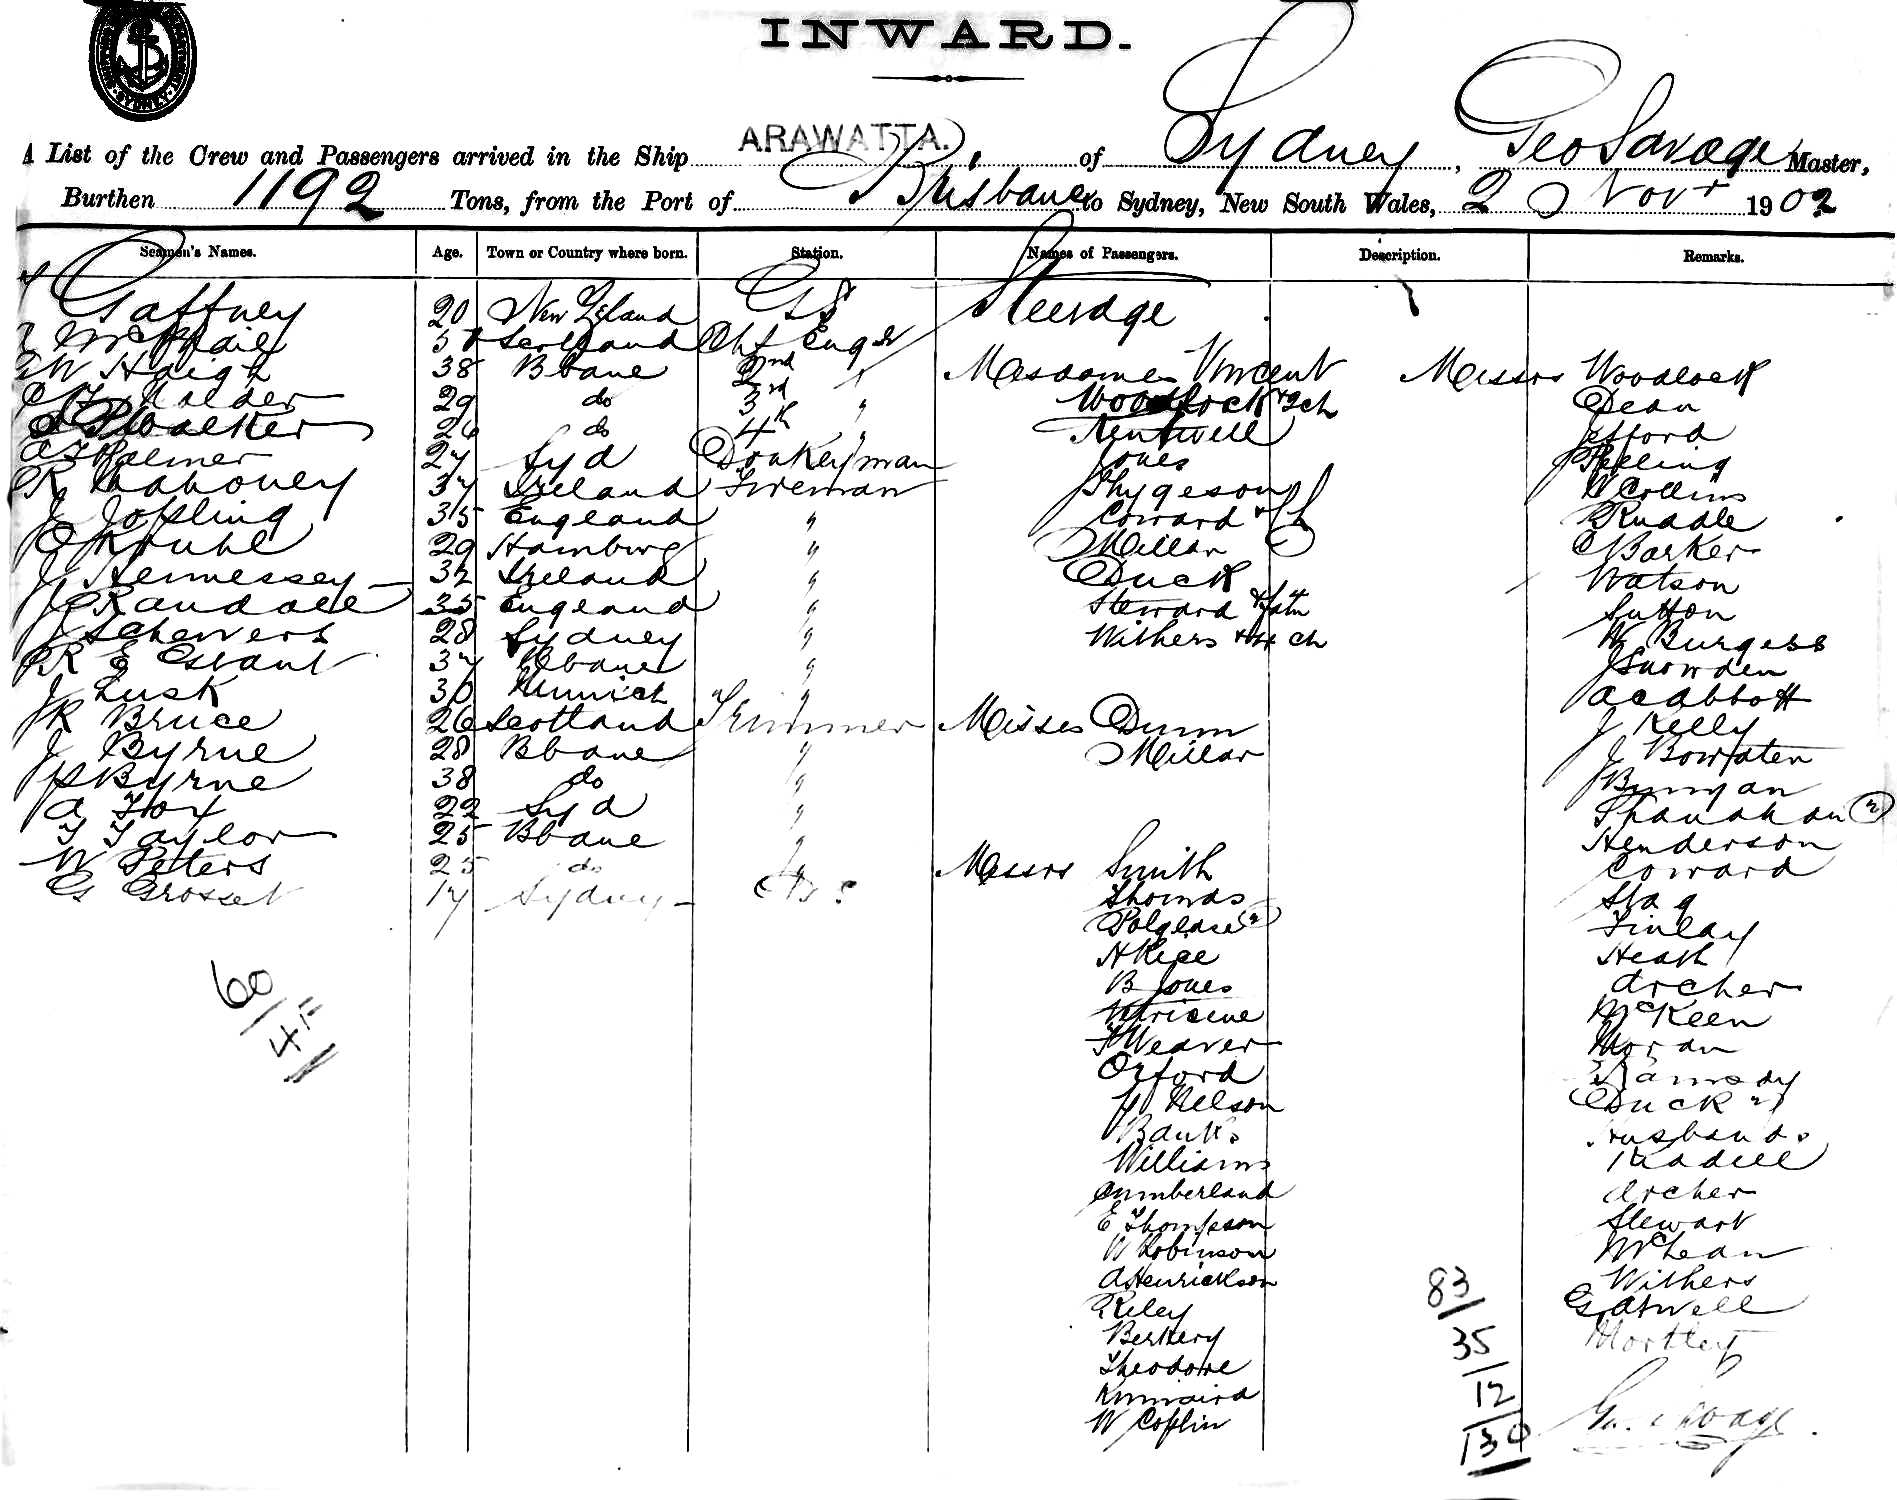 INWARD.
SYDNEY
A List of the Crew and Passengers arrived in the Ship ARAWATTA. of Sydney, Geo Savage Master,
Burthen 1192 Tons, from the Port of Brisbane to Sydney, New South Wales, 2 Novr 1902
Seamen's Names. Age. Town or Country where born. Station. Names of Passengers. Description. Remarks.
Gaffney 20 New Zeland G S Steerage
McPhail Scotland Chf Engr
W Haigh 38 Bbane 2nd " Mesdames Vincent Messrs Woodlock
Holder 29 do 3rd " Woodlock + 2 ch Dean
Walker 26 do 4th " Kentwell Jefford
Palmer 27 Syd Donkeyman Jones
R Mahoney 37 Ireland Fireman Thygeson W Collins
J Jopling 35 England " Coward + Ruddle
29 Hamburg " Millar Barker
J Hennessey 32 Ireland " Duck Watson
Randall 35 England " Steward Sutton
J 28 Sydney " Withers + ch W Burgess
R E Grant 37 Bbane " J Snowden
J Lusk 30 Munich " A C Abbott
J R Bruce 26 Scotland Trimmer Misses Dunn J Kelly
J Byrne 28 Bbane " Millar J
P Byrne 38 do " Bunyan
A Fox 22 Syd " Shanahan (2)
T Taylor 25 Bbane " Henderson
W Peters 25 do " Messrs Smith Coward
G Grosset 17 Sydney Thomas Stag
Polglase (2) Finlay
H Rice Heath
B Jones Archer
McKeen
F Weaver Moran
Orford Ramsay
Nelson Duck
Banks Husbands
Williams
Cumberland Archer
E Thompson Stewart
W Robinson McLean
A Henrickson Withers
Riley G Atwell
Berkery
Theodore
Kinnaird
W Coplin Geo Savage
60
4
83
35
12
130